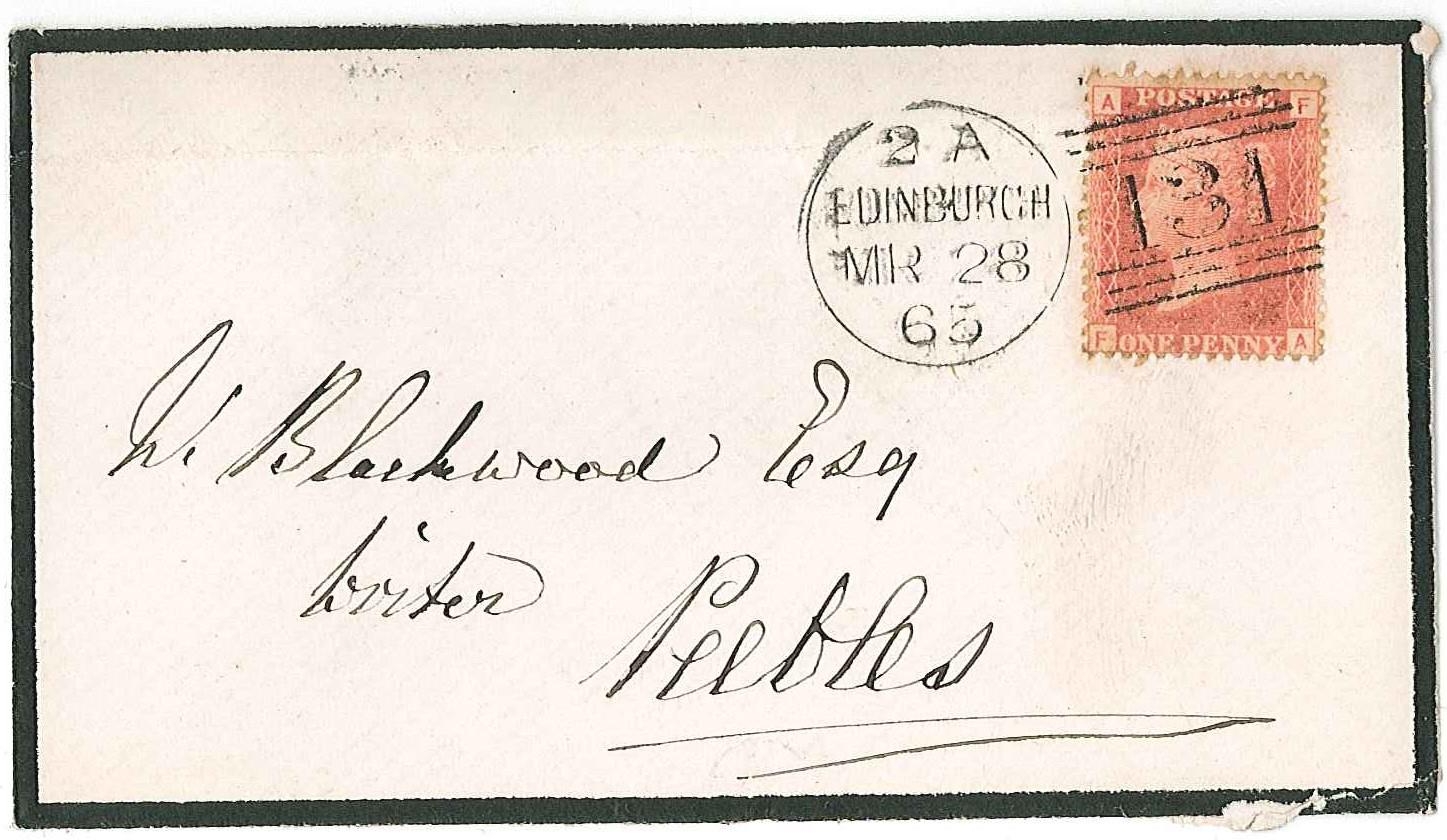 2 A
EDINBURGH
MR 28
65
A POSTAGE F
131
F ONE PENNY A
W. Blackwood Esq
Writer
Peebles